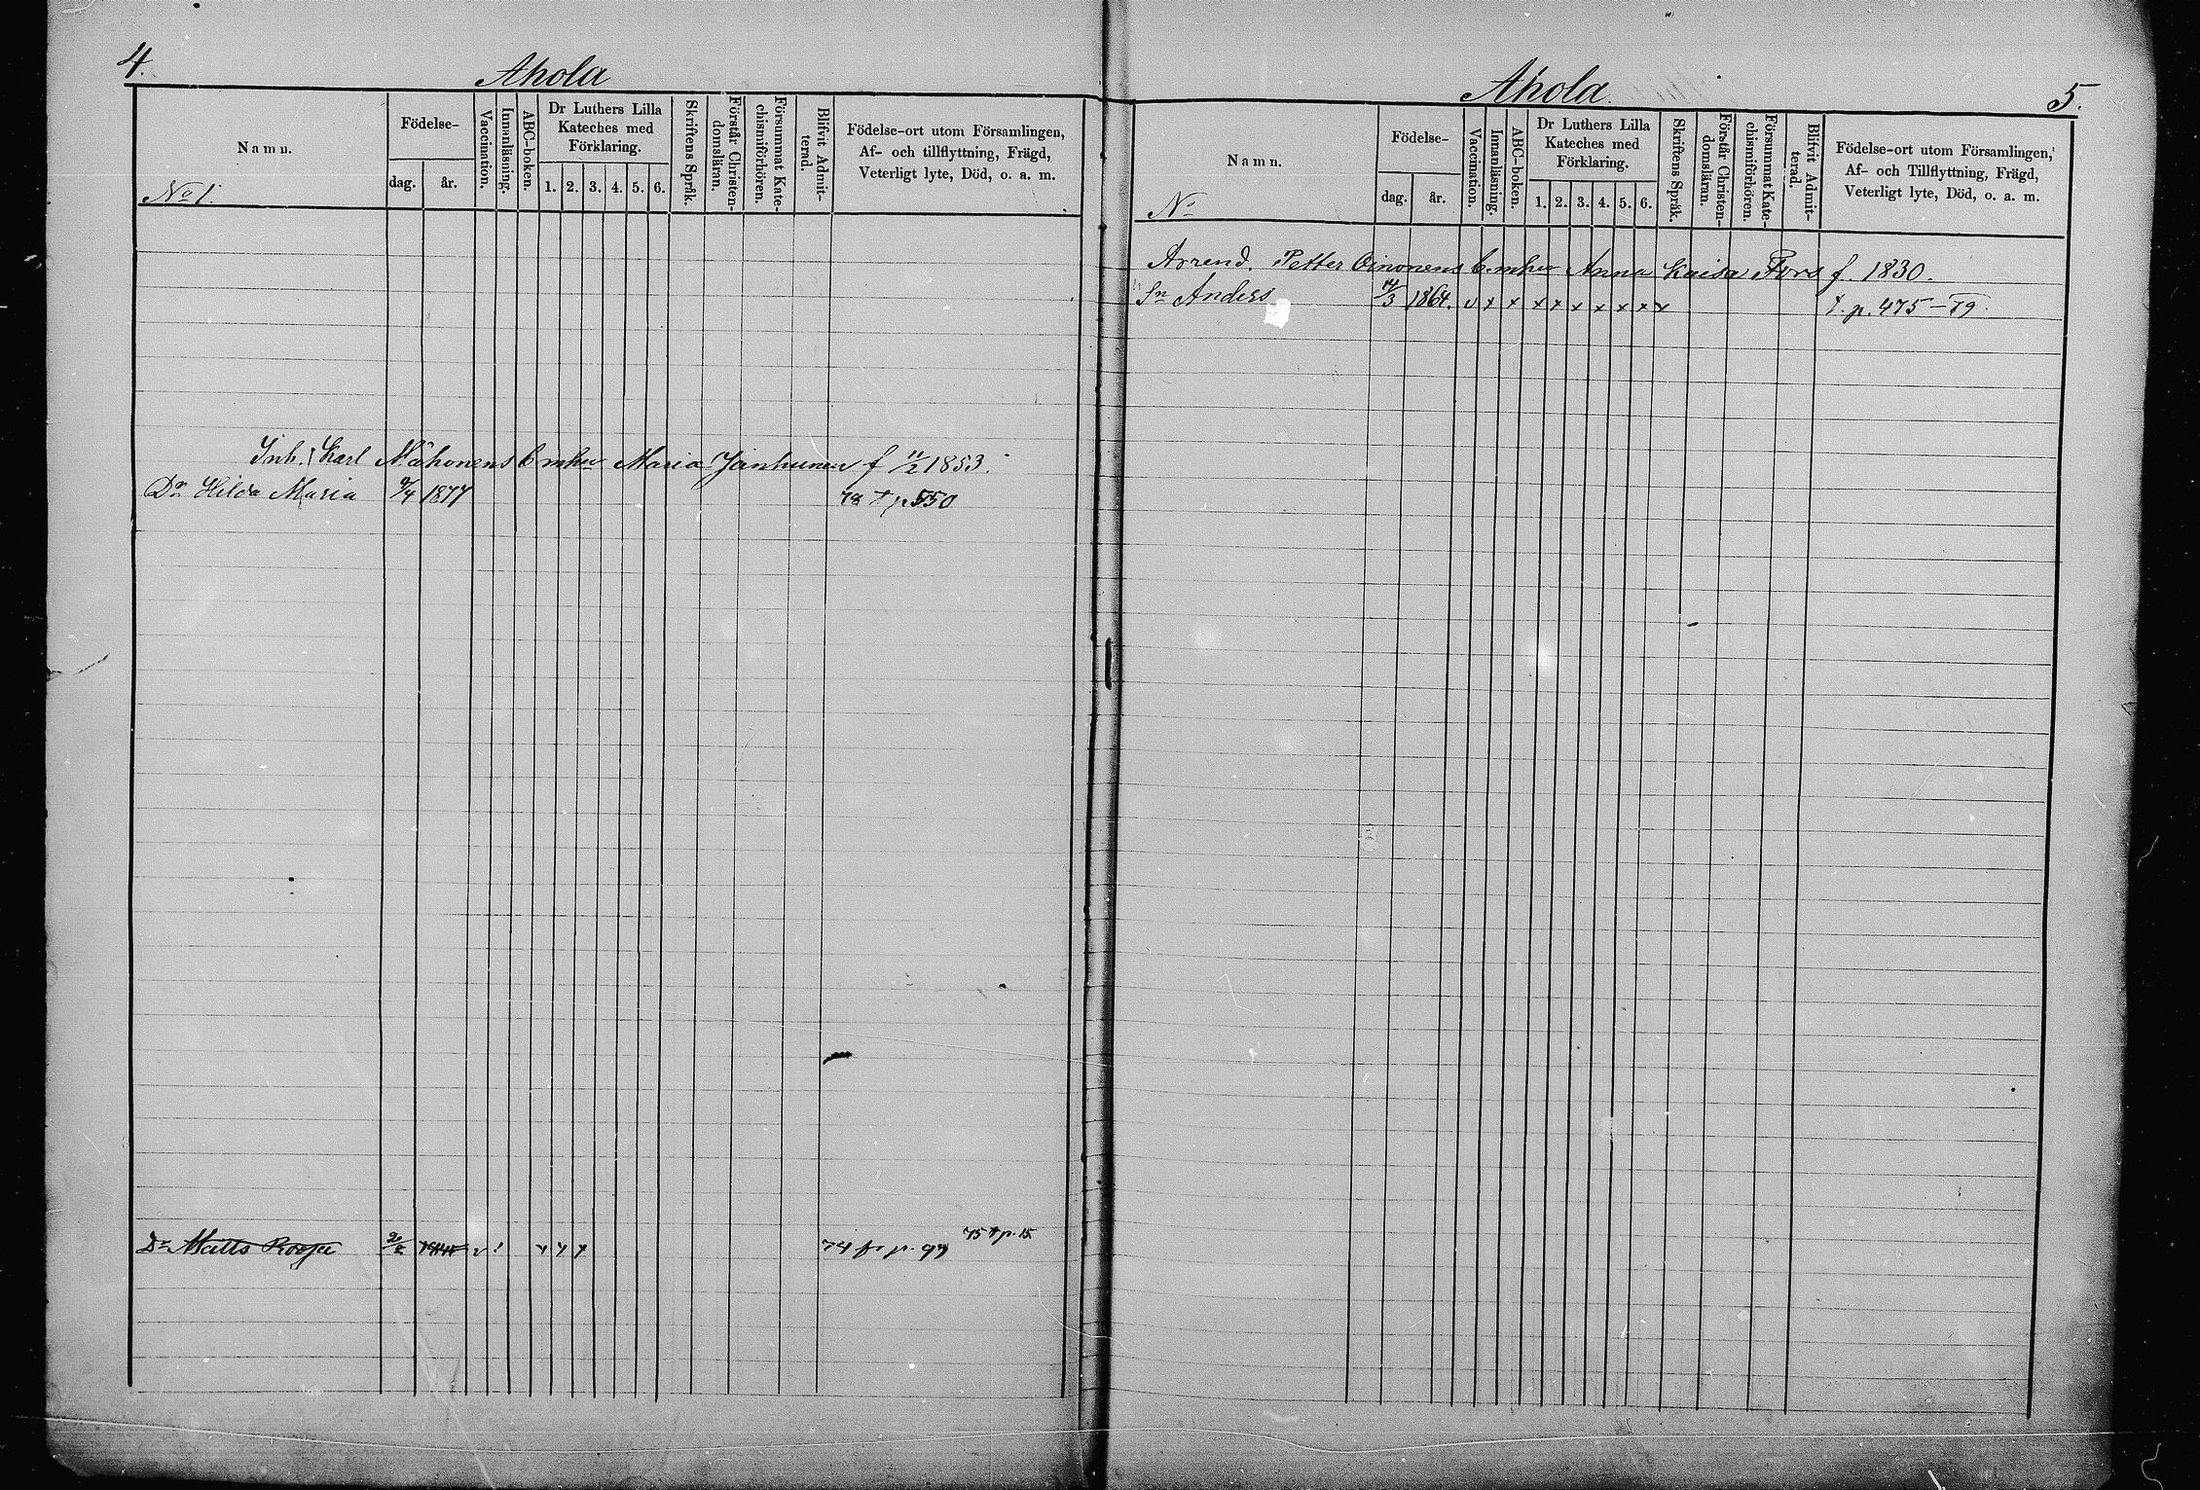 4.
Ahola
Namn.
No 1.
Födelse-
dag.
år.
Vaccination.
Innanläsning.
ABC-boken.
Dr Luthers Lilla
Kateches med
Förklaring.
1. 2. 3. 4. 5. 6.
Skriftens Språk.
Förstår Christen-
domsläran.
Försummat Kate-
chismiförhören.
Blifvit Admit-
terad.
Födelse-ort utom Församlingen,
Af- och tillflyttning, Frägd,
Veterligt lyte, Död, o. a. m.
Inh. Karl Mähonens Maria Janhunen f 11/2 1853.
Dr Hilda Maria 9/4 1877 78 t p. 550
Dr Matts v x x x 74 fr p. 97 75 t p. 15
Ahola.
5.
Namn.
No
Födelse-
dag.
år.
Vaccination.
Innanläsning.
ABC-boken.
Dr Luthers Lilla
Kateches med
Förklaring.
1. 2. 3. 4. 5. 6.
Skriftens Språk.
Förstår Christen-
domsläran.
Försummat Kate-
chismiförhören.
Blifvit Admit-
terad.
Födelse-ort utom Församlingen,
Af- och Tillflyttning, Frägd,
Veterligt lyte, Död, o. a. m.
Arrend. Petter Oinonens Anna Kaisa Fors f. 1830.
Sn Anders 14/3 1864. v x x x x x x x x x t. p. 475-79.